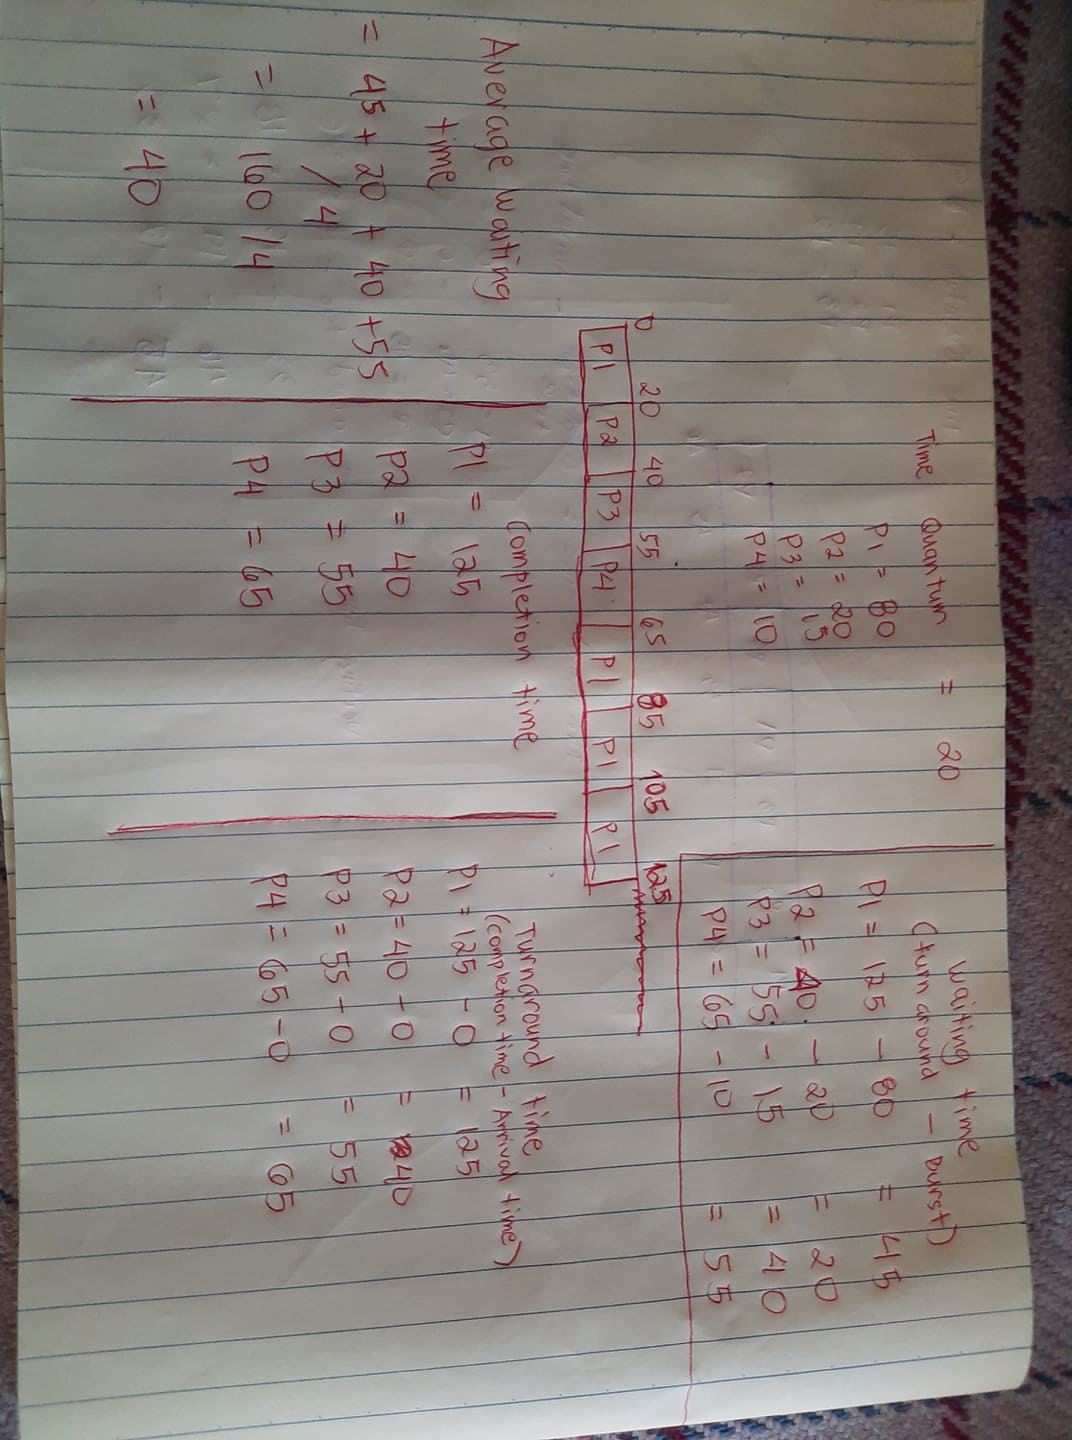 Time Quantum = 20
P1 = 80
P2 = 20
P3 = 15
P4 = 10
Waiting time
(turn around - Burst)
P1 = 125 - 80 = 45
P2 = 40 - 20 = 20
P3 = 55 - 15 = 40
P4 = 65 - 10 = 55
0 20 40 55 65 85 105 125
P1 P2 P3 P4 P1 P1 P1
Average Waiting
time
= 45 + 20 + 40 + 55
/ 4
= 160 / 4
= 40
Completion time
P1 = 125
P2 = 40
P3 = 55
P4 = 65
Turnground time
(completion time - Arrival time)
P1 = 125 - 0 = 125
P2 = 40 - 0 = 40
P3 = 55 - 0 = 55
P4 = 65 - 0 = 65